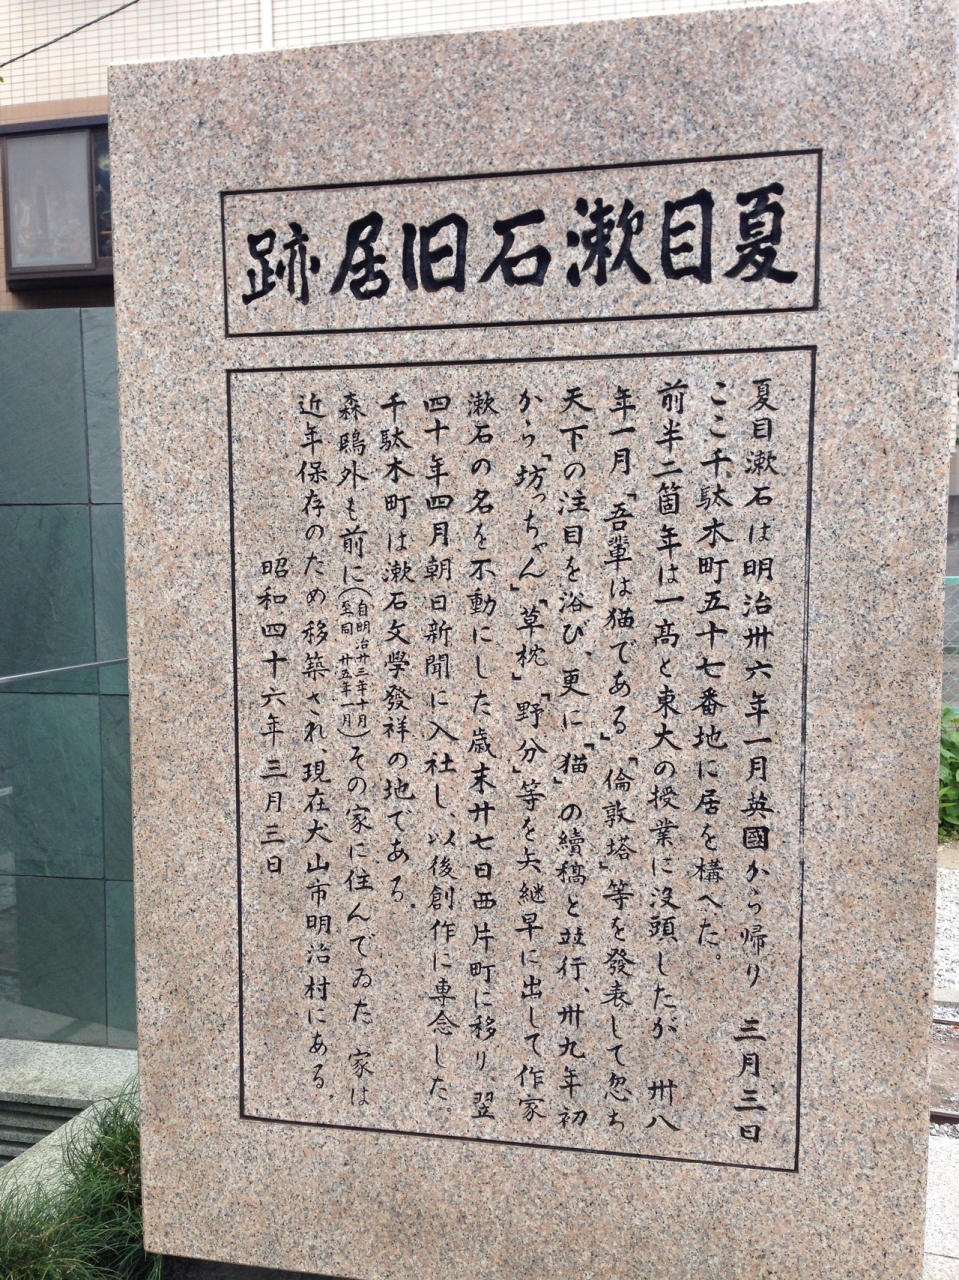 夏目漱石旧居跡
夏目漱石は明治卅六年一月英國から帰り 三月三日
ここ千駄木町五十七番地に居を構へた。
前半二箇年は一高と東大の授業に没頭したが 卅八
年一月「吾輩は猫である」「倫敦塔」等を發表して忽ち
天下の注目を浴び、更に「猫」の續稿と竝行、卅九年初
から「坊っちゃん」「草枕」「野分」等を矢継早に出して作家
漱石の名を不動にした歳末廿七日西片町に移り、翌
四十年四月朝日新聞に入社し、以後創作に専念した。
千駄木町は漱石文學發祥の地である。
森鷗外も前に(自明治廿三年十月至同廿五年一月)その家に住んでゐた 家は
近年保存のため移築され、現在犬山市明治村にある。
昭和四十六年三月三日